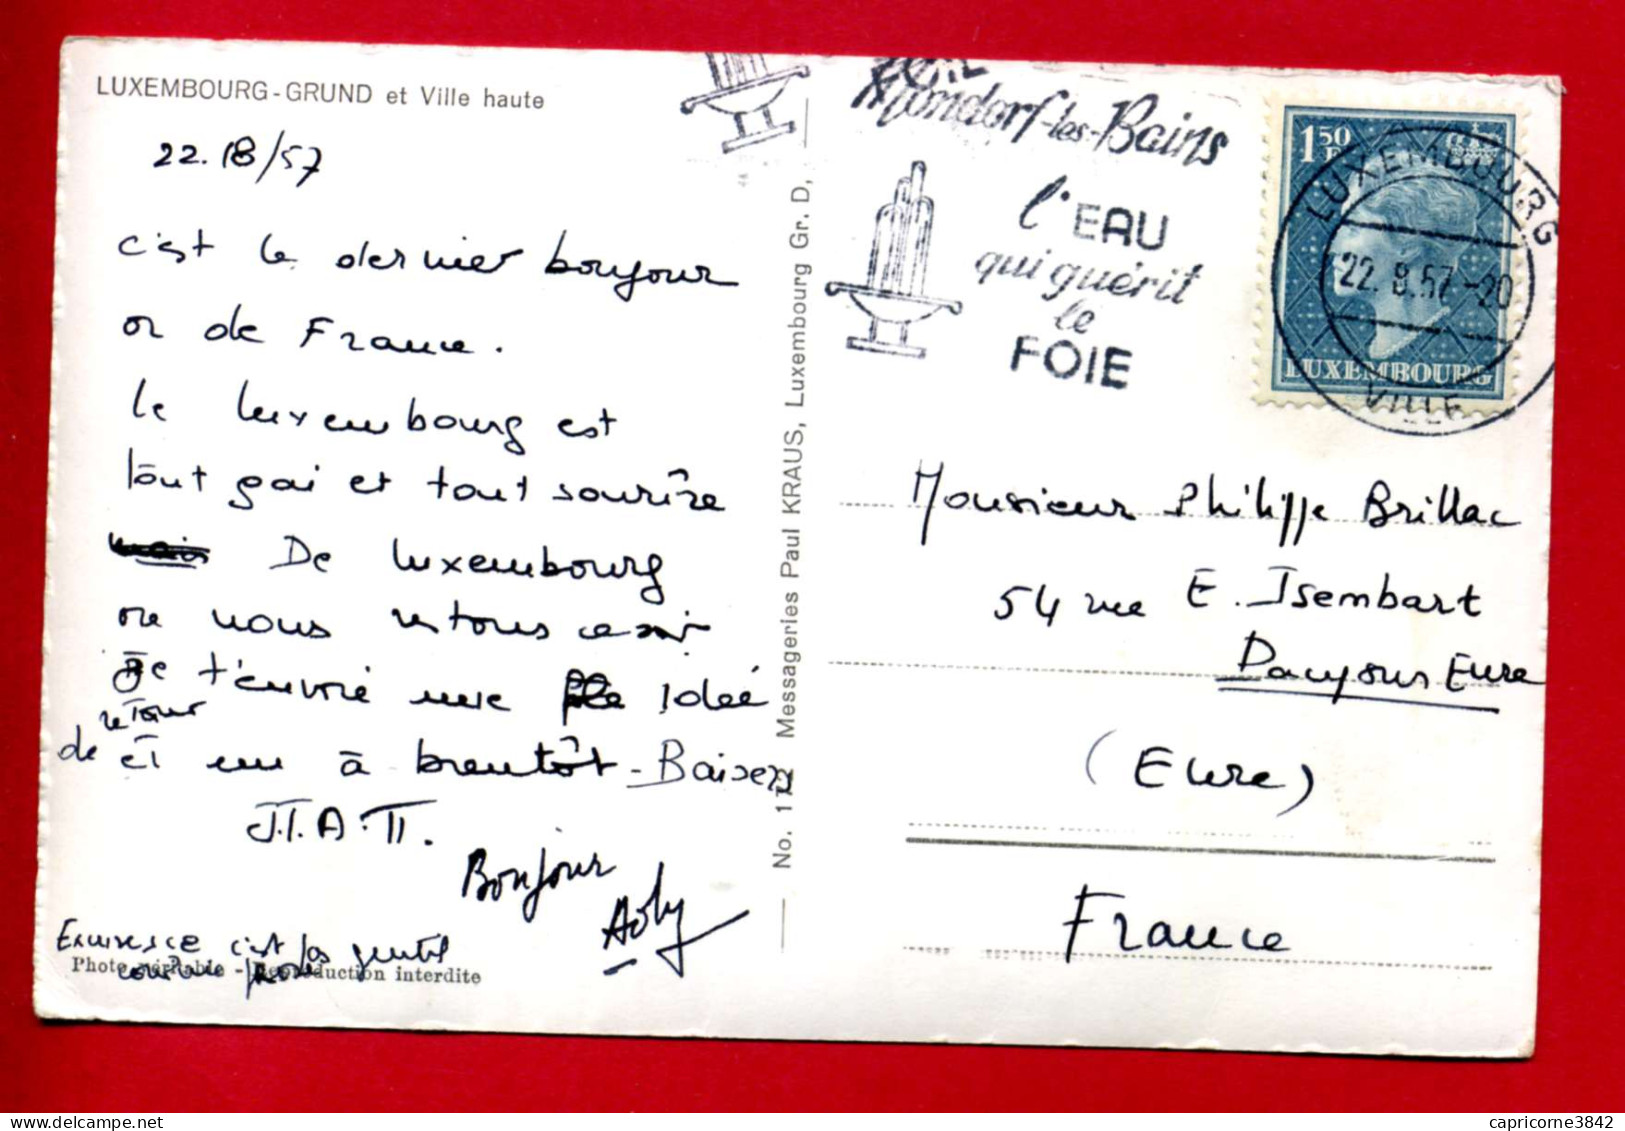 LUXEMBOURG-GRUND et Ville haute
22.18/57
c'est le dernier bonjour
or de France.
le luxembourg est
tout gai et tout sourire
De luxembourg
ou nous
Je t'envoie une idée
retour
de et à bientôt - Baisers
J.T.A.TT.
Bonjour
c'est pas gentil
Photo véritable - Reproduction interdite
No. 172 Messageries Paul KRAUS, Luxembourg Gr. D,
Mondorf-les-Bains
l'EAU
qui guérit
le
FOIE
1 50 F
LUXEMBOURG
LUXEMBOURG
22. 8.57.-20
VILLE
Monsieur Philippe Brillac
54 rue E. Isembart
Pacy sous Eure
(Eure)
France
capricorne3842